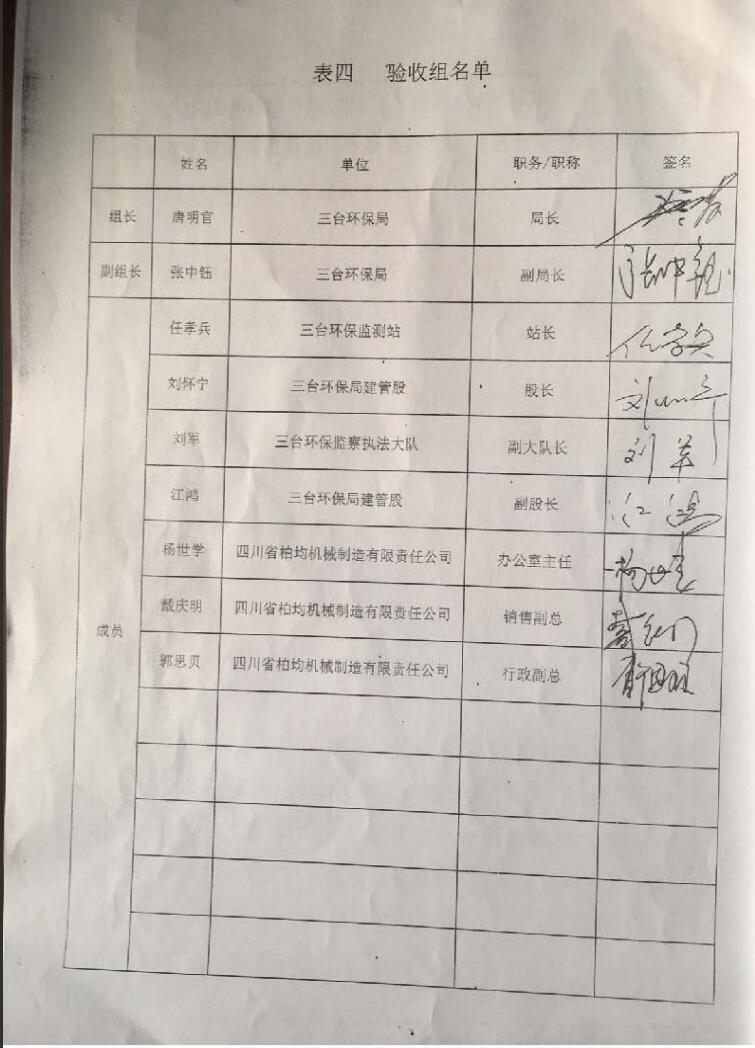 表四 验收组名单
姓名 单位 职务/职称 签名
组长 唐明官 三台环保局 局长
副组长 张中钰 三台环保局 副局长
任孝兵 三台环保监测站 站长
刘怀宁 三台环保局建管股 股长
刘军 三台环保监察执法大队 副大队长 刘军
江鸿 三台环保局建管股 副股长 江鸿
杨世学 四川省柏均机械制造有限责任公司 办公室主任 杨世学
成员 戴庆明 四川省柏均机械制造有限责任公司 销售副总
郭思贝 四川省柏均机械制造有限责任公司 行政副总